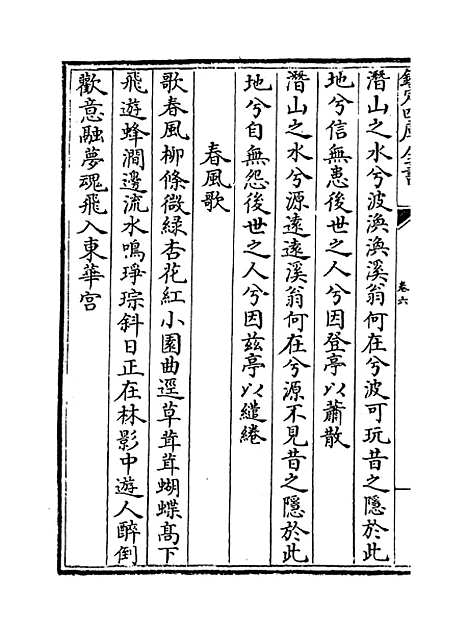 欽定四庫全書
卷六
潛山之水兮波渙渙溪翁何在兮波可玩昔之隱於此
地兮信無患後世之人兮因登亭以蕭散
潛山之水兮源遠遠溪翁何在兮源不見昔之隱於此
地兮自無怨後世之人兮因兹亭以繾綣
春風歌
歌春風柳條微綠杏花紅小園曲逕草茸茸蝴蝶髙下
飛遊蜂澗邊流水鳴琤琮斜日正在林影中遊人醉倒
歡意融夢魂飛入東華宫